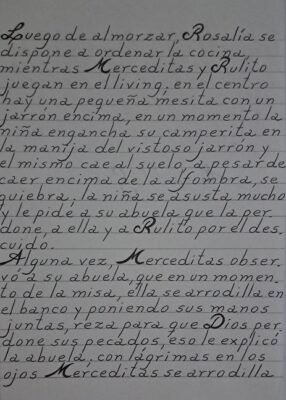 Luego de almorzar, Rosalía se
dispone a ordenar la cocina,
mientras Merceditas y Rulito
juegan en el living, en el centro
hay una pequeña mesita con un
jarrón encima, en un momento la
niña engancha su camperita en
la manija del vistoso jarrón y
el mismo cae al suelo, a pesar de
caer encima de la alfombra, se
quiebra, la niña se asusta mucho
y le pide a su abuela que la per_
done, a ella y a Rulito por el des_
cuido.
Alguna vez, Merceditas obser_
vó a su abuela, que en un momen_
to de la misa, ella se arrodilla en
el banco y poniendo sus manos
juntas, reza para que Dios per_
done sus pecados, eso le explicó
la abuela; con lágrimas en los
ojos Merceditas se arrodilla